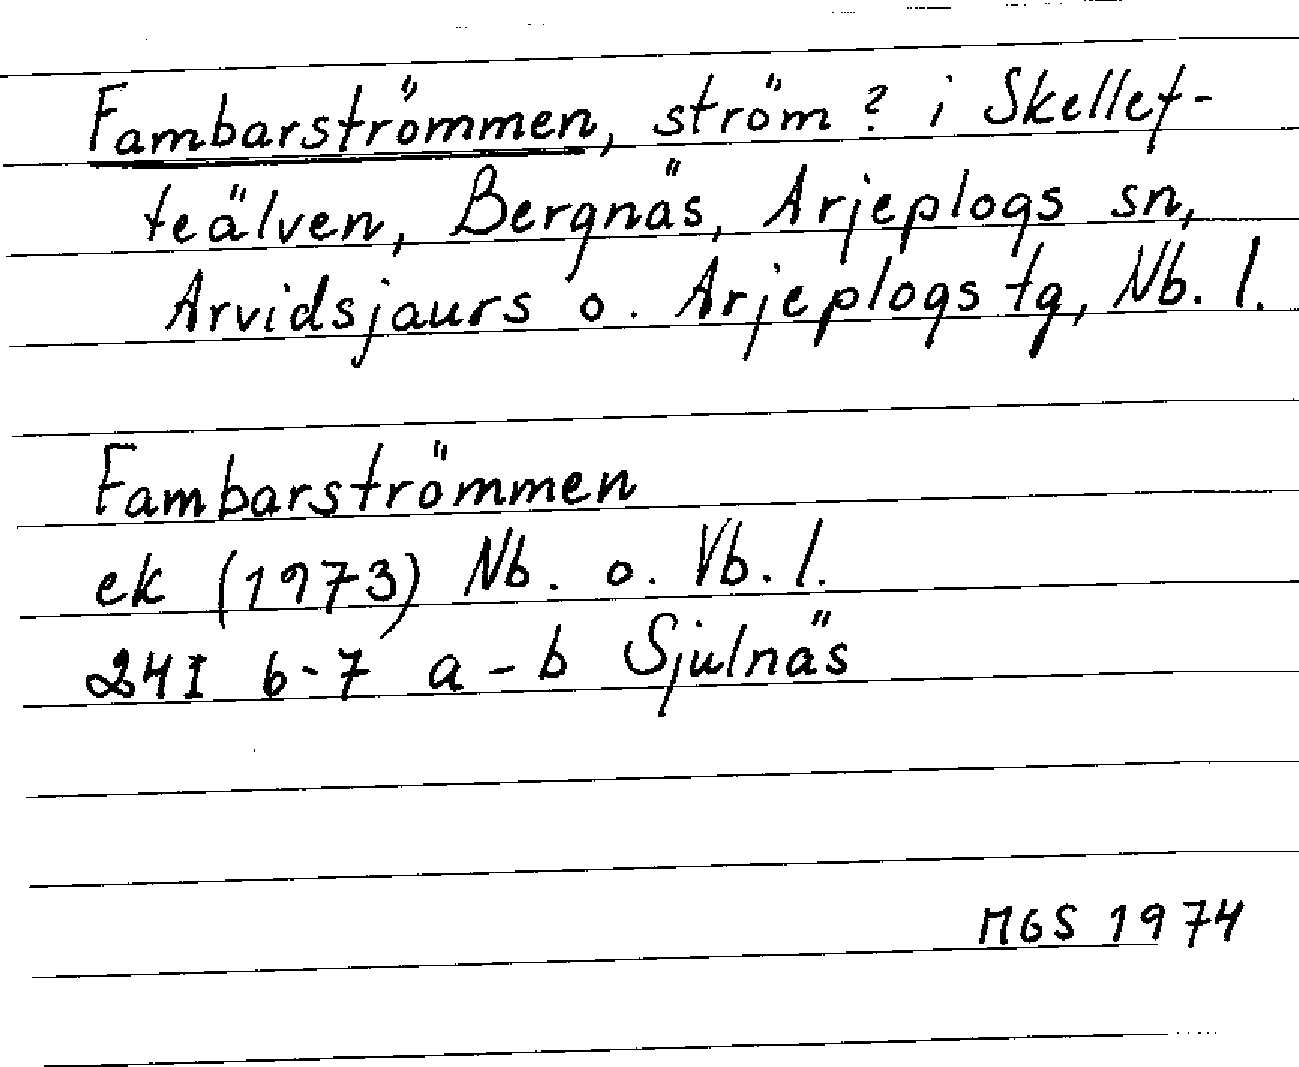 Fambarströmmen, ström? i Skellef-
teälven, Bergnäs, Arjeplogs sn,
Arvidsjaurs o. Arjeplogs tg, Nb. l.
Fambarströmmen
ek (1973) Nb. o. Vb. l.
24I 6-7 a-b Sjulnäs
MGS 1974